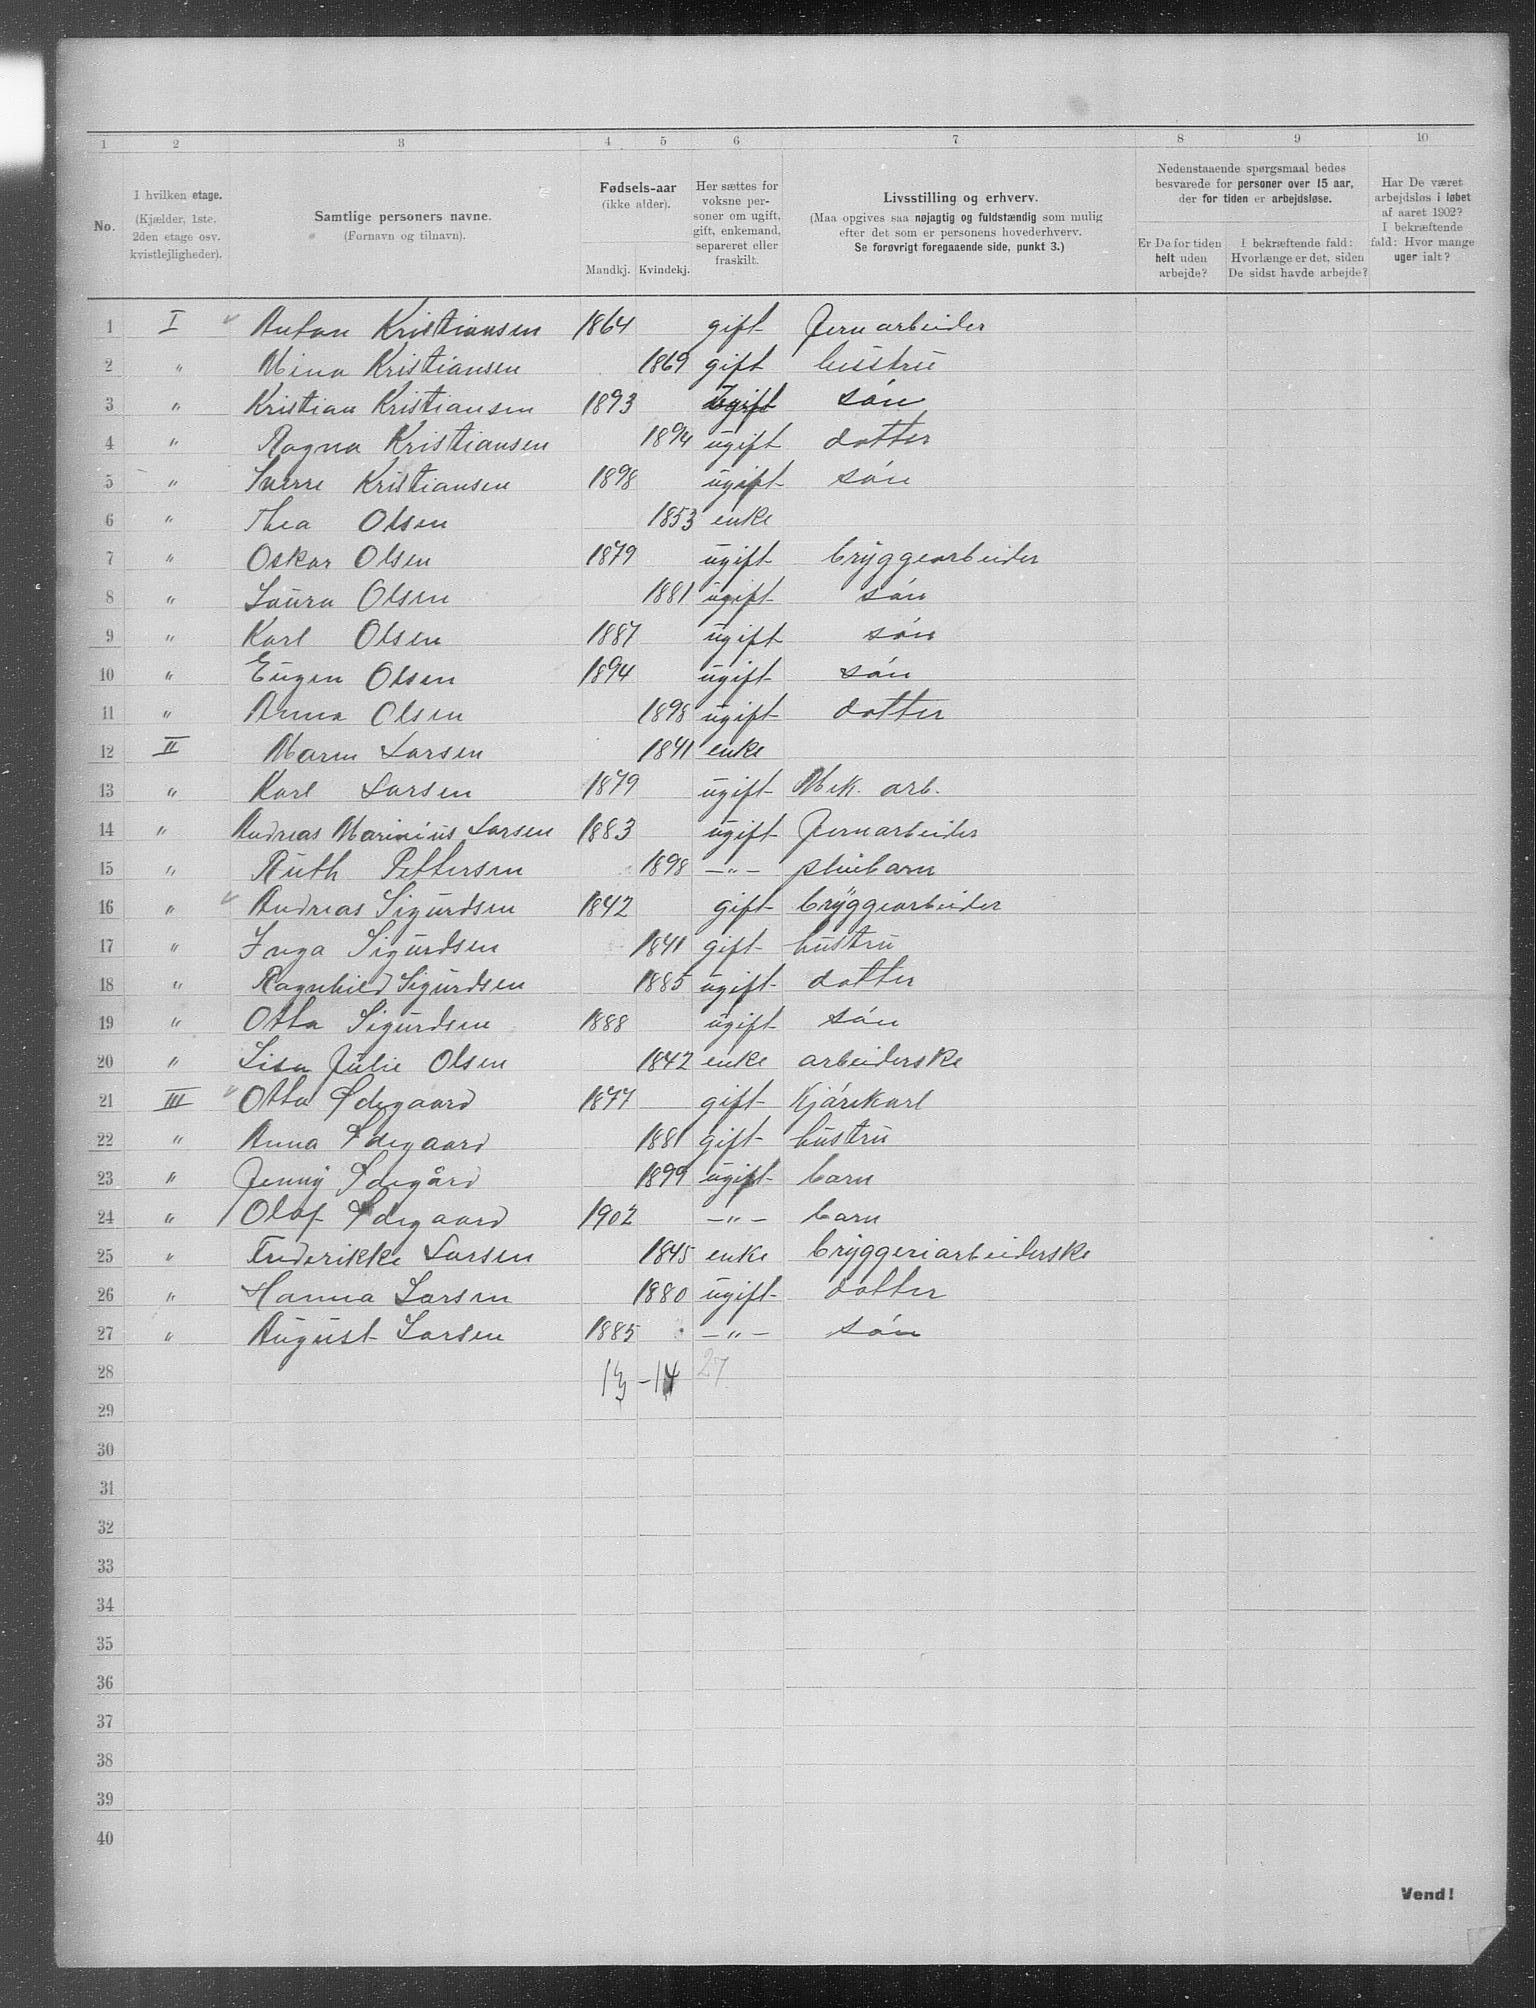 1 2 3 4 5 6 7 8 9 10
No.
I hvilken etage.
(Kjælder, 1ste, 2den etage osv. kvistlejligheder).
Samtlige personers navne.
(Fornavn og tilnavn).
Fødsels-aar
(ikke alder).
Mandkj. Kvindekj.
Her sættes for voksne personer om ugift, gift, enkemand, separeret eller fraskilt.
Livsstilling og erhverv.
(Maa opgives saa nøjagtig og fuldstændig som mulig efter det som er personens hovederhverv.
Se forøvrigt foregaaende side, punkt 3.)
Nedenstaaende spørgsmaal bedes besvarede for personer over 15 aar, der for tiden er arbejdsløse.
Er De for tiden helt uden arbejde?
I bekræftende fald: Hvorlænge er det, siden De sidst havde arbejde?
Har De været arbejdsløs i løbet af aaret 1902? I bekræftende fald: Hvor mange uger ialt?
1 I Anton Kristiansen 1864 gift Jernarbeider
2 " Mina Kristiansen 1869 gift hüstrü
3 " Kristian Kristiansen 1893 Ugift søn
4 " Ragna Kristiansen 1894 ugift datter
5 " Sverre Kristiansen 1898 ugift søn
6 " Thea Olsen 1853 enke
7 " Oskar Olsen 1879 ugift bryggearbeider
8 " Laura Olsen 1881 ugift søn
9 " Karl Olsen 1887 ugift søn
10 " Eugen Olsen 1894 ugift søn
11 " Anna Olsen 1898 ugift datter
12 II Maren Larsen 1841 enke
13 " Karl Larsen 1879 ugift Mek. arb.
14 " Andreas Marinius Larsen 1883 ugift Jernarbeider
15 " Ruth Pettersen 1898 -"- pleiebarn
16 " Andreas Sigurdsen 1842 gift bryggearbeider
17 " Inga Sigurdsen 1841 gift hustru
18 " Ragnhild Sigurdsen 1885 ugift datter
19 " Otto Sigurdsen 1888 ugift søn
20 " Lisa Julie Olsen 1842 enke arbeiderske
21 III Otto Ødegaard 1877 gift Kjørekarl
22 " Anna Ødegaard 1881 gift hustru
23 " Jenny Ødegård 1899 ugift barn
24 " Olaf Ødegaard 1902 -"- barn
25 " Frederikke Larsen 1845 enke bryggeriarbeiderske
26 " Hanna Larsen 1880 ugift datter
27 " August Larsen 1885 -"- søn
28 13 - 14 27
29
30
31
32
33
34
35
36
37
38
39
40
Vend!